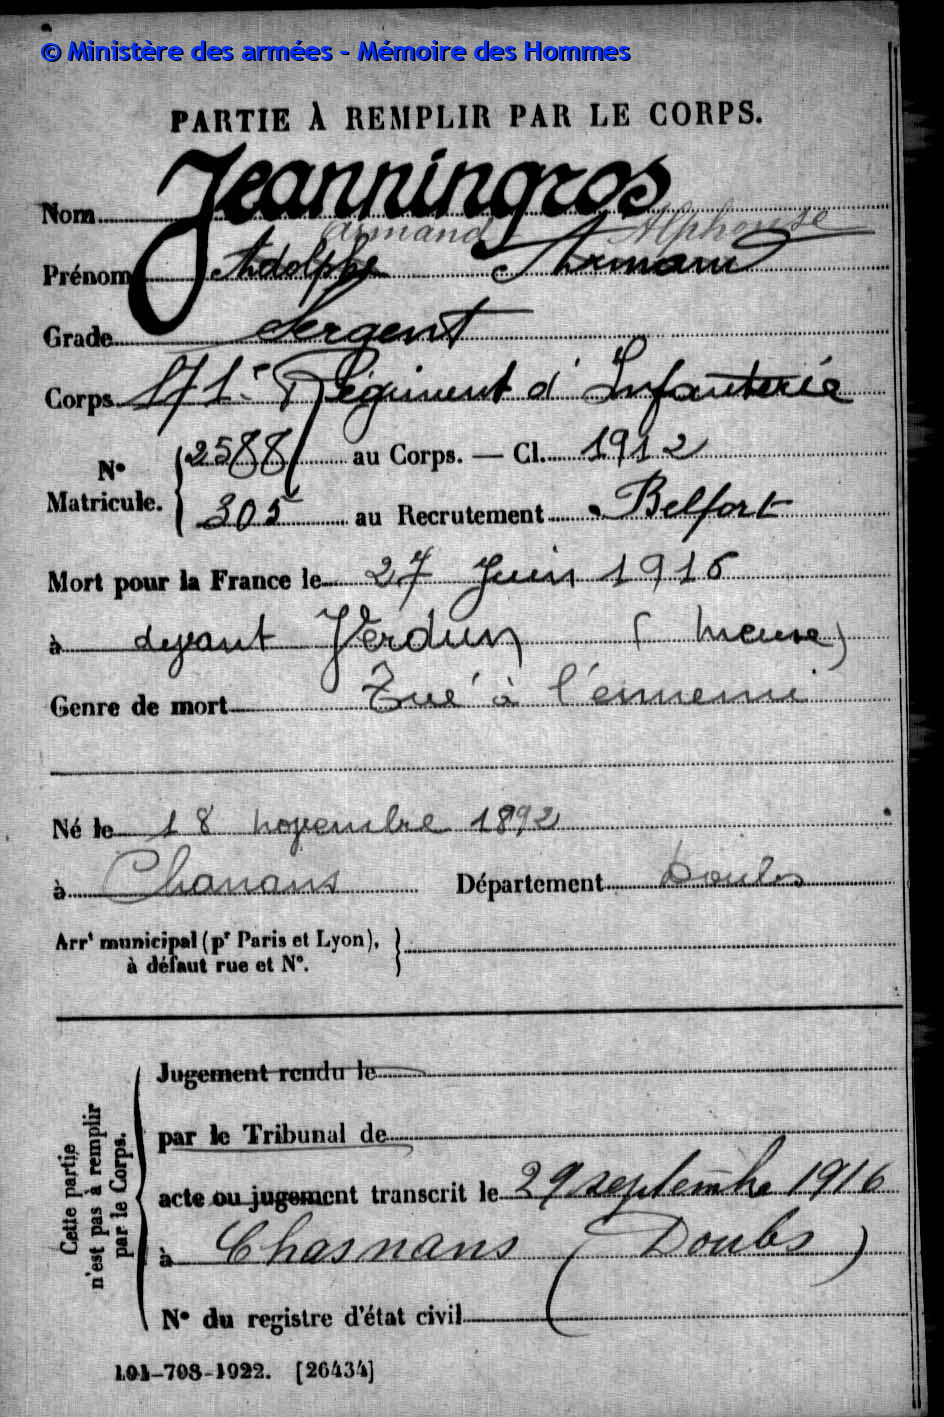 © Ministère des armées - Mémoire des Hommes
PARTIE À REMPLIR PAR LE CORPS.
Nom Jeanningros
armand Alphonse
Prénom Adolphe Armand
Grade Sergent
Corps 171e Régiment d'Infanterie
N° Matricule. 2588 au Corps. — Cl. 1912
305 au Recrutement Belfort
Mort pour la France le 27 Juin 1916
à devant Verdun (Meuse)
Genre de mort Tué à l'ennemi
Né le 18 novembre 1892
à Chanans Département Doubs
Arrt municipal (pr Paris et Lyon),
à défaut rue et N°.
Cette partie
n'est pas à remplir
par le Corps.
Jugement rendu le
par le Tribunal de
acte ou jugement transcrit le 29 septembre 1916
à Chasnans (Doubs)
N° du registre d'état civil
101-708-1922. [26434]